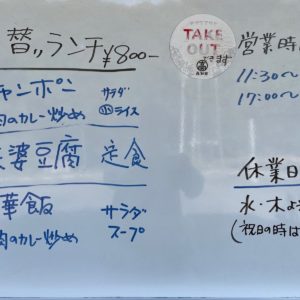 替リランチ ¥800-
ャンポン サラダ
肉のカレー炒め 小ライス
婆豆腐 定食
華飯 サラダ
肉のカレー炒め スープ
TAKE
OUT
できます
営業時
11:30〜
17:00〜
休業日
水・木よ
(祝日の時は